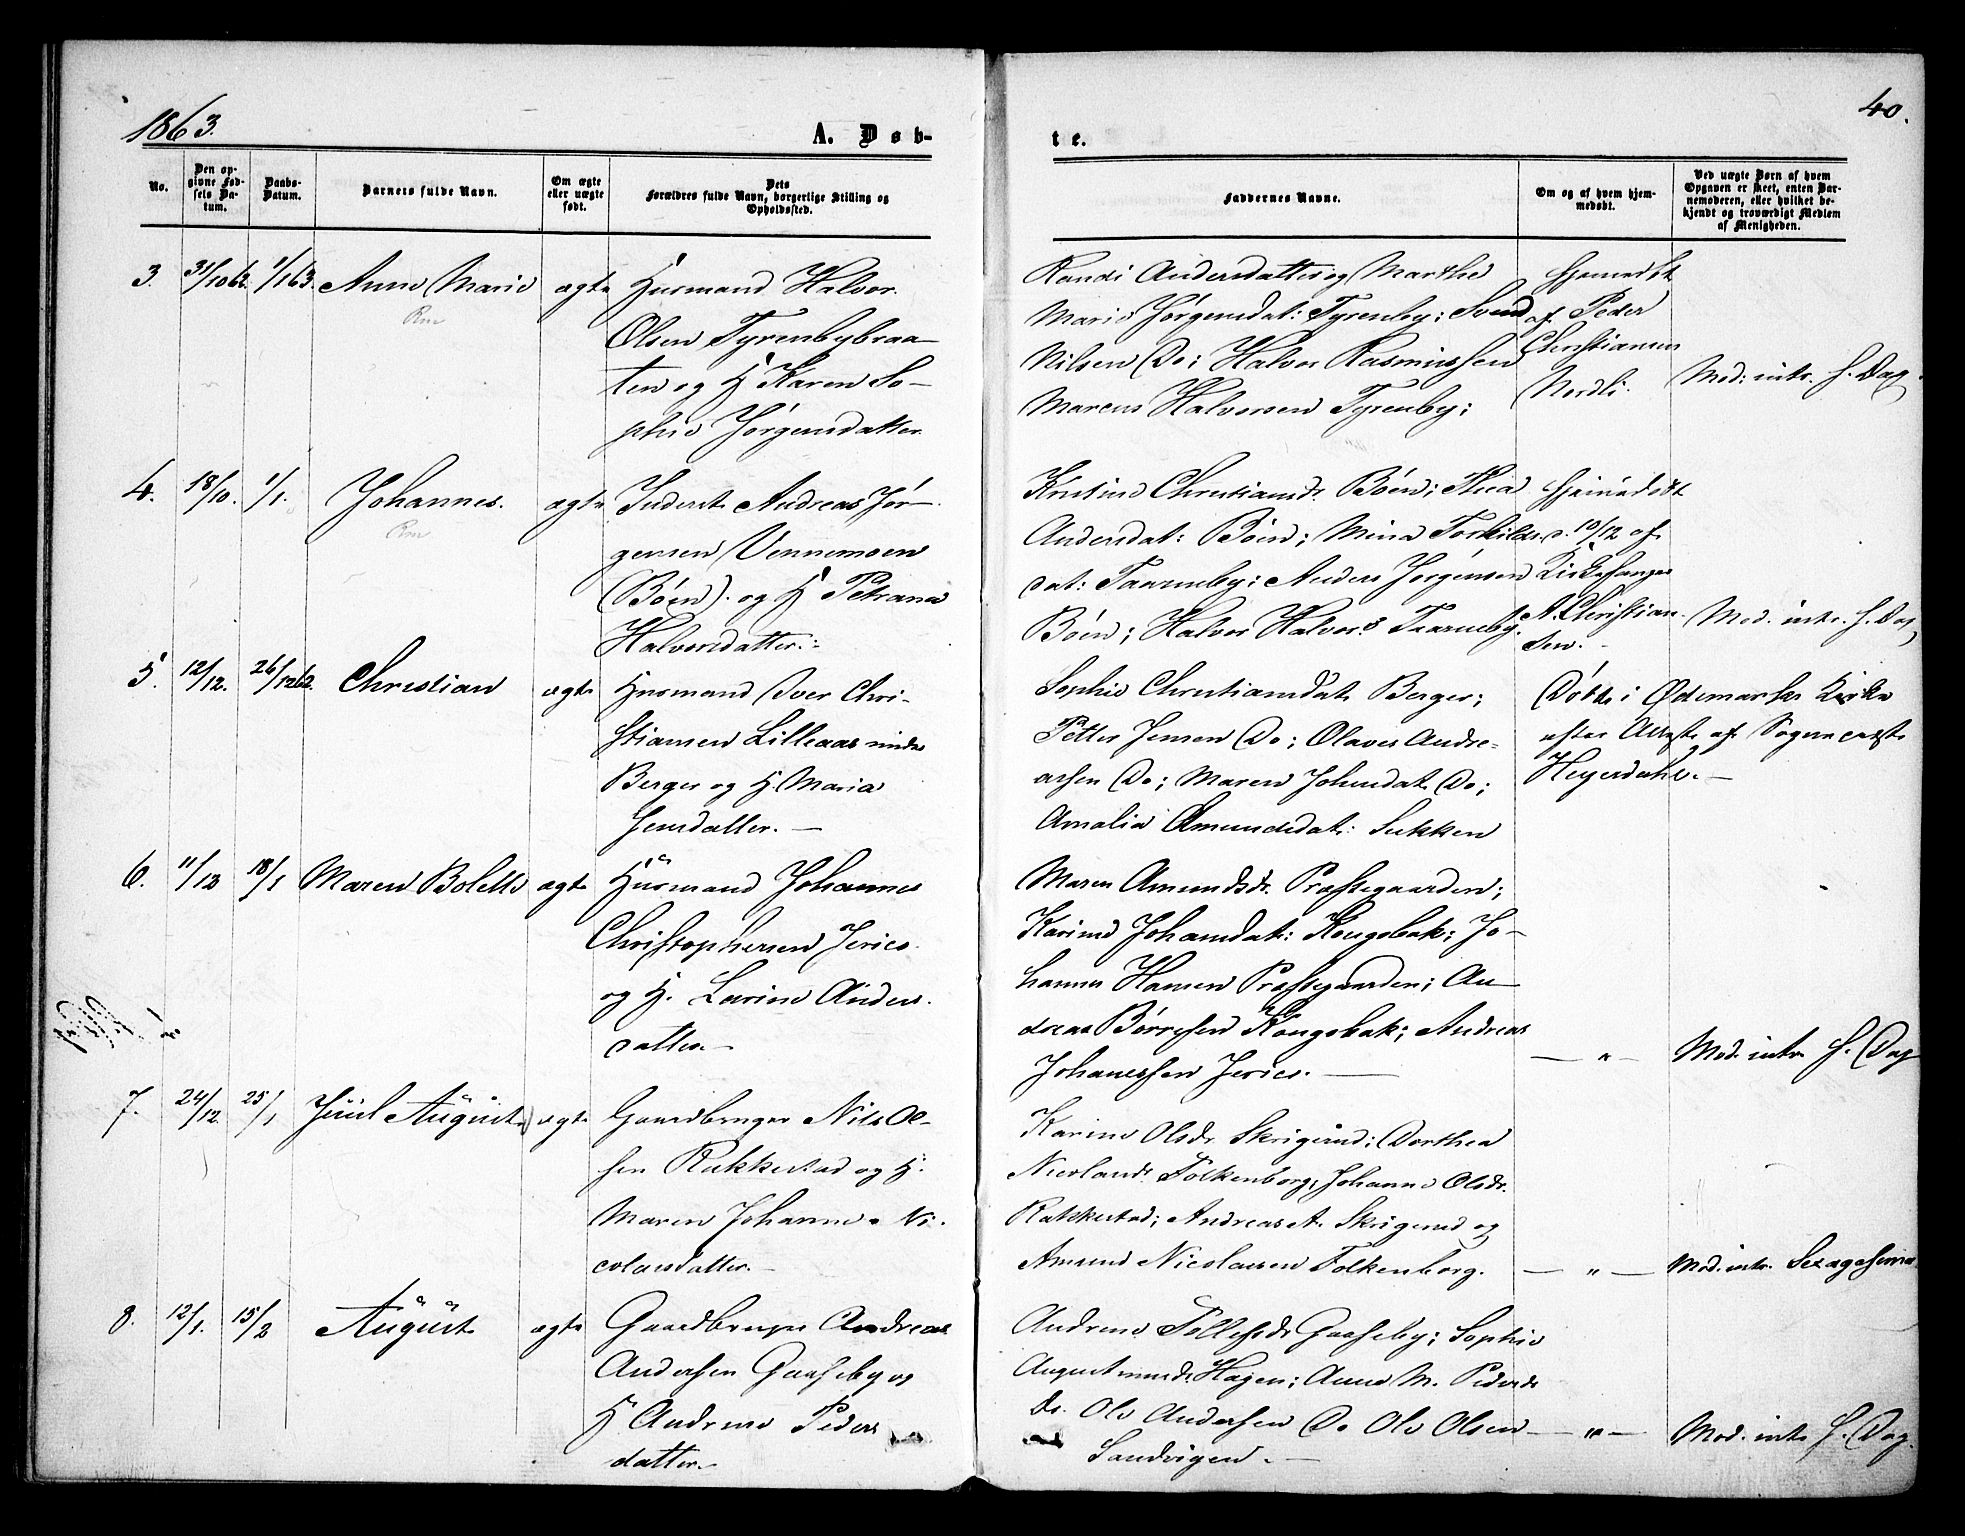 1863.
40.
A. Døb-
te.
No.
Den opgivne Fødsels Datum.
Daabs-Datum.
Barnets fulde Navn.
Om ægte eller uægte født.
Dets Forældres fulde Navn, borgerlige Stilling og Opholdssted.
Faddernes Navne.
Om og af hvem hjemmedøbt.
Ved uægte Børn af hvem Opgaven er skeet, enten Barnemoderen, eller hvilket bekjendt og troværdigt Medlem af Menigheden.
3. 31/10 62. 1/1 63. Anne Marie ægte Husmand Halvor
Olsen Tyrenbybraa-
ten og H Karen So-
phie Jørgensdatter
Randi Andersdatter og Marthe
Marie Jørgensdat: Tyrenby; Svend
Nilsen Do; Halvor Rasmussen
Marcus Halvorsen Tyrenby;
Hjemedøbt
af Peder
Christiansen
Nordli.
Mod: intr. s. Dag.
4. 18/10. 1/1. Johannes. ægte Inderst Andreas Jør-
gensen Vennemoen
(Bøen). og H Petrana
Halvorsdatter.
Kristine Christiansdr. Bøen; Thea
Andersdat: Bøen; Mina Torkilds-
dat: Taarneby; Anders Jørgensen
Bøen; Halvor Halvors. Taarneby.
Hjemedøbt
d. 10/12 af
Kirkesanger
A. Christian-
sen.
Mod. intr. s. Dag
5. 12/12. 26/12 62. Christian ægte Husmand Iver Chri-
stiansen Lilleaas under
Berger og H. Maria
Jensdatter.
Sophie Christiansdat. Berger;
Petter Jensen Do; Olaves Andre-
assen Do; Maren Johnsdat. Do;
Amalia Amundsdat: Sukken
Døbt i Ødemarks Kirke
efter Attest af Sognepræst
Heyerdahl.
6. 11/12 18/1 Maren Bolette ægte Husmand Johannes
Christophersen Jerico
og H. Larine Anders-
datter.
Maren Amundsdr. Præstegaarden;
Karine Johansdat: Kongsbak; Jo-
hannes Hansen Præstegaarden; An-
dreas Børresen Kongsbak; Andreas
Johanessen Jerico.
— " — Mod. intr. s. Dag
7. 24/12. 25/1 Juul August ægte Gaardbruger Nils Ol-
sen Rakkestad og H.
Maren Johanne Ni-
colaisdatter.
Karine Olsdr. Skrigerud; Dorthea
Nicolaisdr. Folkenborg, Johanne Olsdr.
Rakkestad; Andreas A. Skrigerud og
Amund Nicolaisen Folkenborg.
— " — Mod. intr. Sexagesima
8. 12/1. 15/2 August ægte Gaardbruger Andreas
Andersen Gaaseby og
H Andrine Peders
datter.
Andrine Tollefsdr Gaaseby; Sophie
Augustinusdr. Hagen; Anne M. Peders
dr. Ole Andersen Do Ole Olsen
Sandvigen.
— " — Mod. intr. s. Dag.